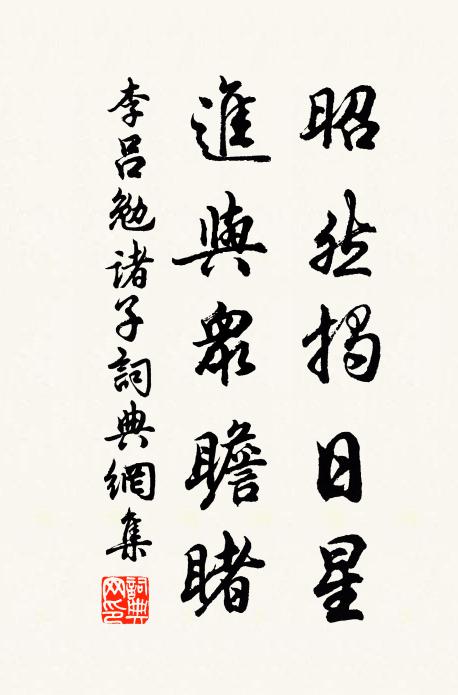 昭然揭日星
進與眾瞻睹
李呂勉諸子詞典網集
詞典網印